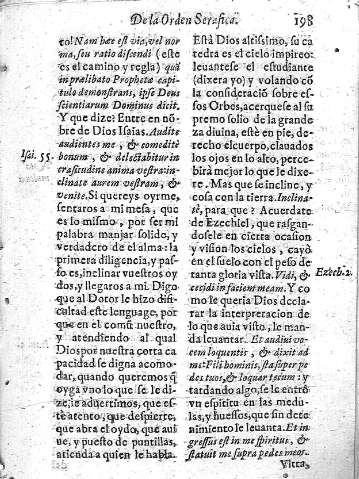 De la Orden Serafica. 198
to! Nam hæc est via, vel nor
ma, seu ratio discendi (este
es el camino y regla) quâ
in prælibato Prophetæ capi
tulo demonstrans, ipse Deus
scientiarum Dominus dicit.
Y que dize: Entre en nõ-
bre de Dios Isaias. Audite
audientes me, & comedite
Isai. 55.
bonum, & delectabitur in
crasitudine anima vestra: in-
clinate aurem vestram, &
venite. Si quereys oyrme,
sentaros a mi mesa, que
es lo mismo, por ser mi
palabra manjar solido, y
verdadero de el alma: la
primera diligencia, y pas-
so es, inclinar vuestros oy-
dos, y llegaros a mi. Digo
que al Dotor le hizo difi-
cultad este lenguage, por
que en el comũ nuestro,
y atendiendo al qual
Dios por nuestra corta ca
pacidad se digna acomo-
dar, quando queremos q̃
oyga vno lo que se le di-
ze, le aduertimos, que es-
tè atento, que despierte,
que abra el oydo, que aui
ue, y puesto de puntillas,
atienda a quien le habla.
Està Dios altissimo, su ca
tedra es el cielo impireo:
leuantese el estudiante
(dixera yo) y volando cõ
la consideraciõ sobre es-
sos Orbes, acerquese al su
premo solio de la grande
za diuina, estè en pie, de-
recho el cuerpo, clauados
los ojos en lo alto, perce-
birà mejor lo que le dixe-
re. Mas que se incline, y
cosa con la tierra. Inclina-
te, para que? Acuerdate
de Ezechiel, que rasgan-
dosele en cierta ocasion
y vision los cielos, cayò
en el suelo con el peso de
tanta gloria vista. Vidi, &
Ezech. 2.
cecidi in faciem meam. Y co
mo le queria Dios declarar
la interpretacion de
lo que auia visto, le man-
da leuantar. Et audiui vo-
cem loquentis, & dixit ad
me: Fili hominis, sta super pe
des tuos, & loquar tecum: y
tardando algo, se le entrò
vn espiritu en las medu-
las, y huessos, que sin dete
nimiento le leuanto. Et in-
gressus est in me spiritus, &
statuit me supra pedes meos.
Vltra,